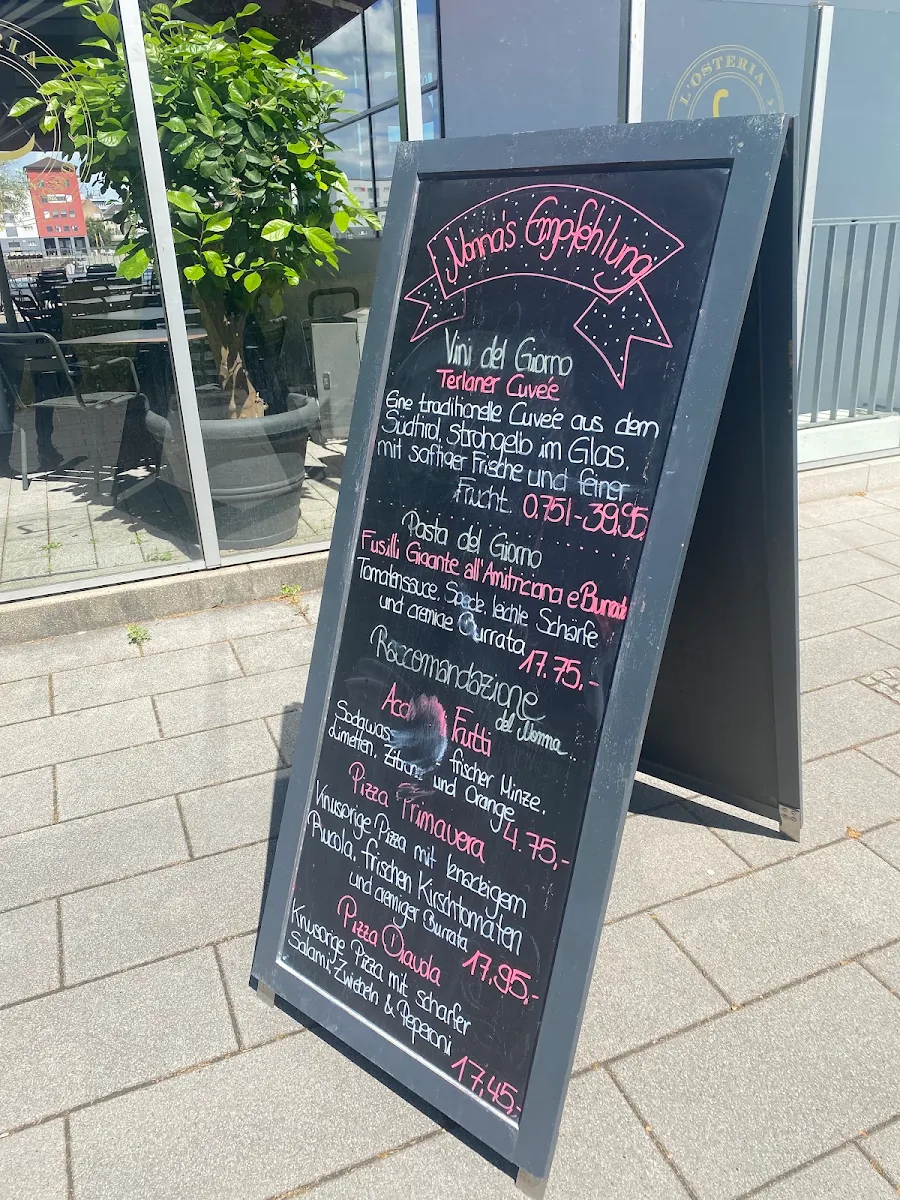 L'OSTERIA
Nonna's Empfehlung
Vini del Giorno
Terlaner Cuveé
Eine traditionelle Cuveé aus dem
Südtirol. Strohgelb im Glas,
mit saftiger Frische und feiner
Frucht. 0.75l - 39,95
Pasta del Giorno
Fusilli Gigante all'Amitriciana e Burrata
Tomatensauce, Speck, leichte Schärfe
und cremige Burrata
17.75,-
Raccomandazione
del Nonna
Frutti
frischer Minze,
Limetten, und Orange
4.75,-
Pizza Primavera
Knusprige Pizza mit knackigem
Rucola, frischen Kirschtomaten
und cremiger Burrata
17,95,-
Pizza Diavola
Knusprige Pizza mit scharfer
Salami, Zwiebeln & Peperoni
17,45,-